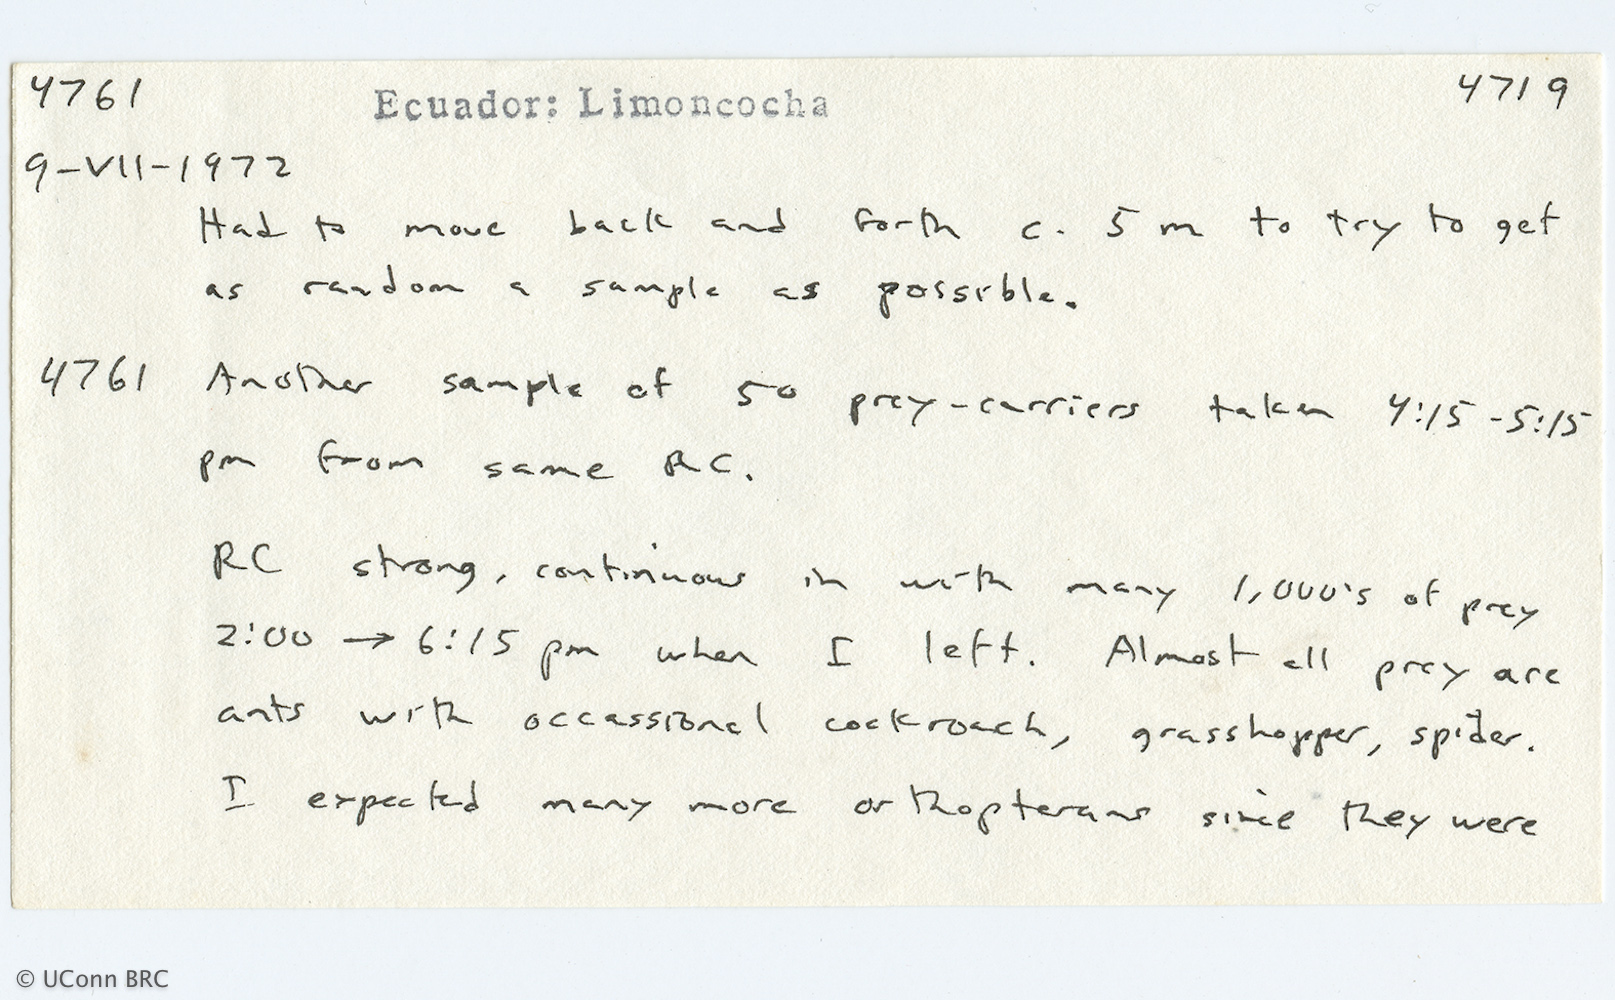 4761 Ecuador: Limoncocha 4719
9-VII-1972
Had to move back and forth c. 5 m to try to get
as random a sample as possible.
4761 Another sample of 50 prey-carriers taken 4:15-5:15
pm from same RC.
RC strong, continuous in with many 1,000's of prey
2:00 → 6:15 pm when I left. Almost all prey are
ants with occassional cockroach, grasshopper, spider.
I expected many more orthopterans since they were
© UConn BRC